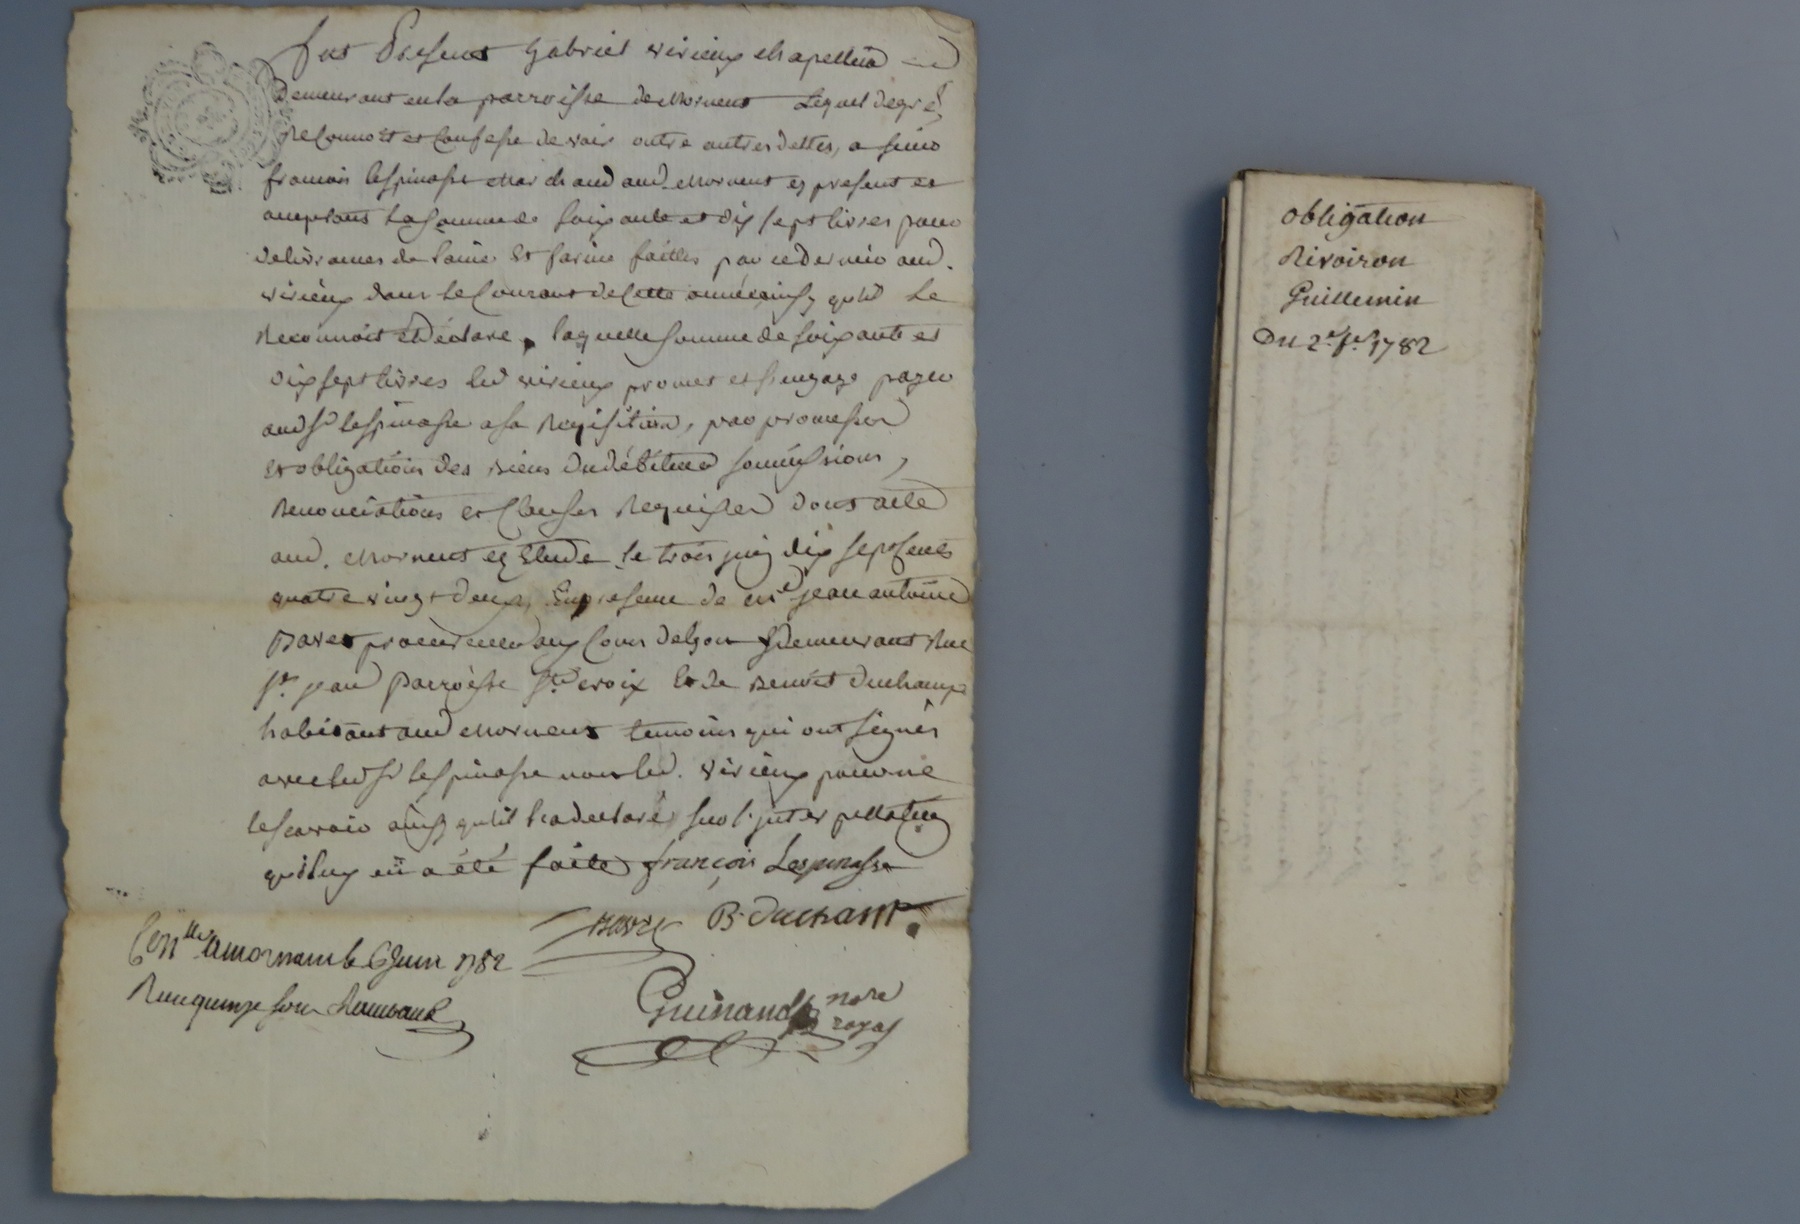 fut Présent Gabriel virieux chapellier
Demeurant en la parroisse de Mornent Lequel de gré
Reconnoit et Confesse devoir outre autres dettes, a sieur
françois lespinasse Marchand aud. Mornent y present et
acceptant La somme de soixante et dix sept livres pour
delivrances de laine Et farine faittes par ce dernier aud.
virieux dans le Courant de Cette année, ainsy qu'il Le
Reconnoit et Déclare, laquelle somme de soixante et
dix sept livres led virieux promet et s'engage payer
aud Sr lespinasse a sa Requisition, par promesses
et obligation des biens du débiteur soumissions,
Renonciations et Clauses Requises Dont acte
aud. Mornent Etude le trois juin dix sept cent
quatre vingt deux, En presence de Me jean antoine
procureur aux Cours de Lyon Demeurant Rue
St. jean Parroisse Ste croix Et de Benoit Duchamp
habitant aud Mornent temoins qui ont signés
avec led Sr lespinasse non led. virieux pour ne
le scavoir ainsy qu'il l'a declaré sur l'interpellation
qui luy en a été faite françois Lespinasse
B. Duchamp.
Con.lle a mornant le 6 Juin 1782
Reçu quinze sous
Guinand nore
royal
Obligation
Rivoiron
Guillemin
Du 2e. 1782